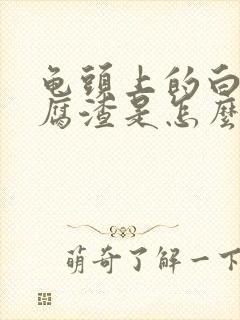 龟頭上的白
腐渣是怎麼
萌奇了解一下